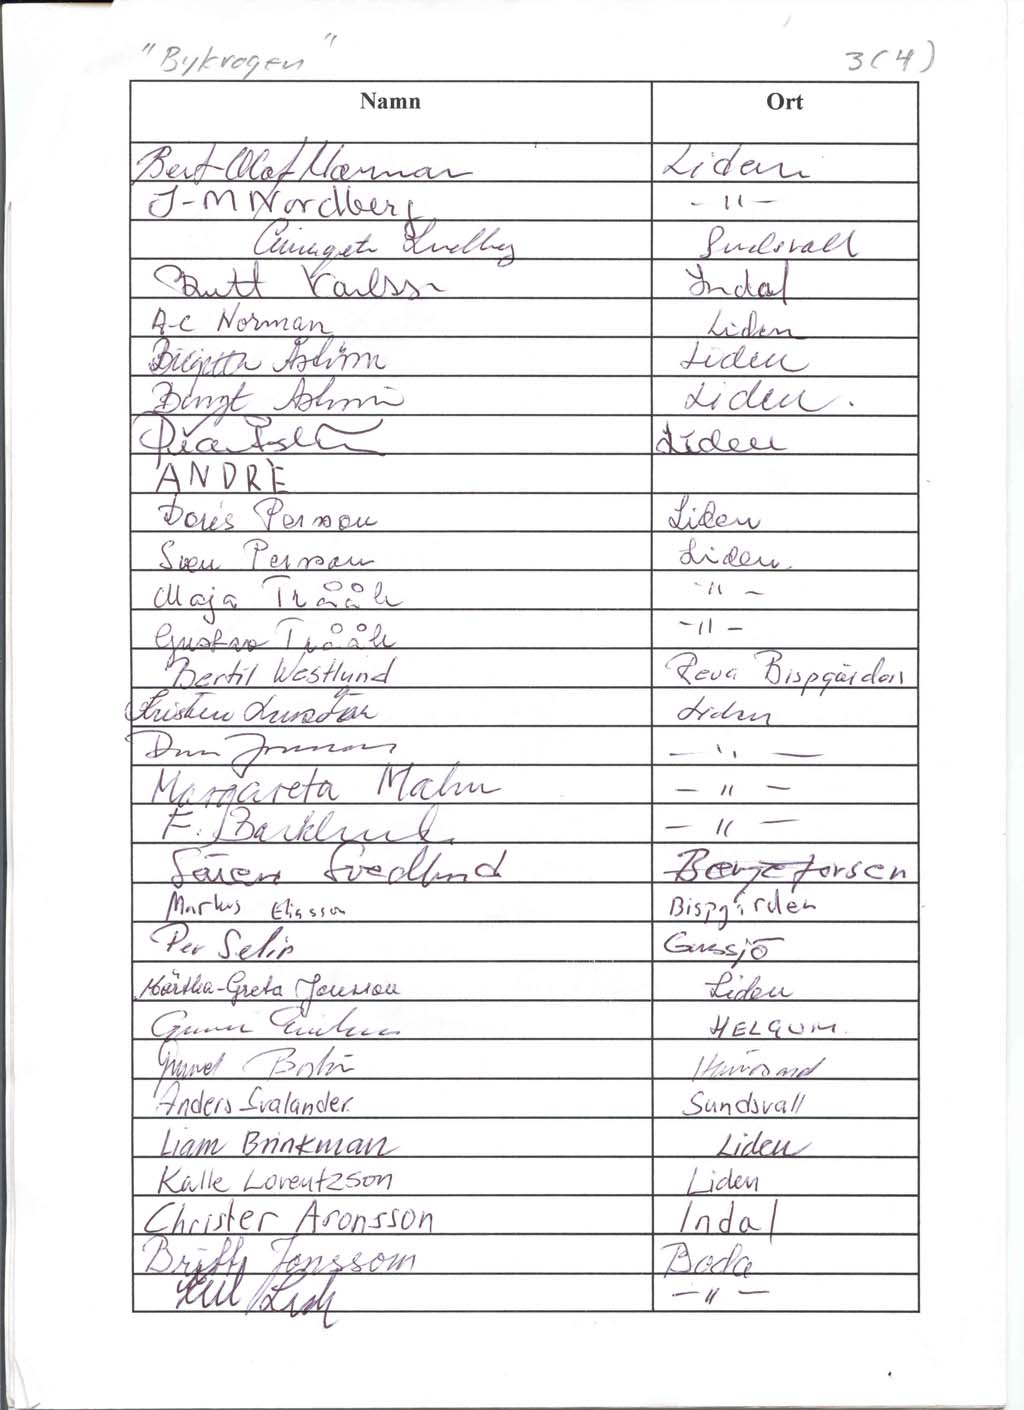 "Bykrogen" 3(4)
Namn Ort
Bert-Olof Liden
J-M Nordberg - 11 -
Sundsvall
Karlsson Indal
A-C Norman Liden
Birgitta Liden
Bengt Liden.
Pia Liden
ANDRÈ
Doris Persson Liden
Sven Persson Liden.
Maja Trååk - 11 -
Gustav Trååk - 11 -
Bertil Westlund Reva Bispgården
Liden
- 11 -
Margareta Malm - 11 -
F. Barklund - 11 -
Sören Svedlund Bergeforsen
Markus Eliasson Bispgården
Per Selin Gussjö
Märtha-Greta Jonsson Liden
HELGUM.
Härnösand
Anders Svalander. Sundsvall
Liam Brinkman Liden
Kalle Lorentzson Liden
Christer Aronsson Indal
Britt Jonssom Boda
- 11 -